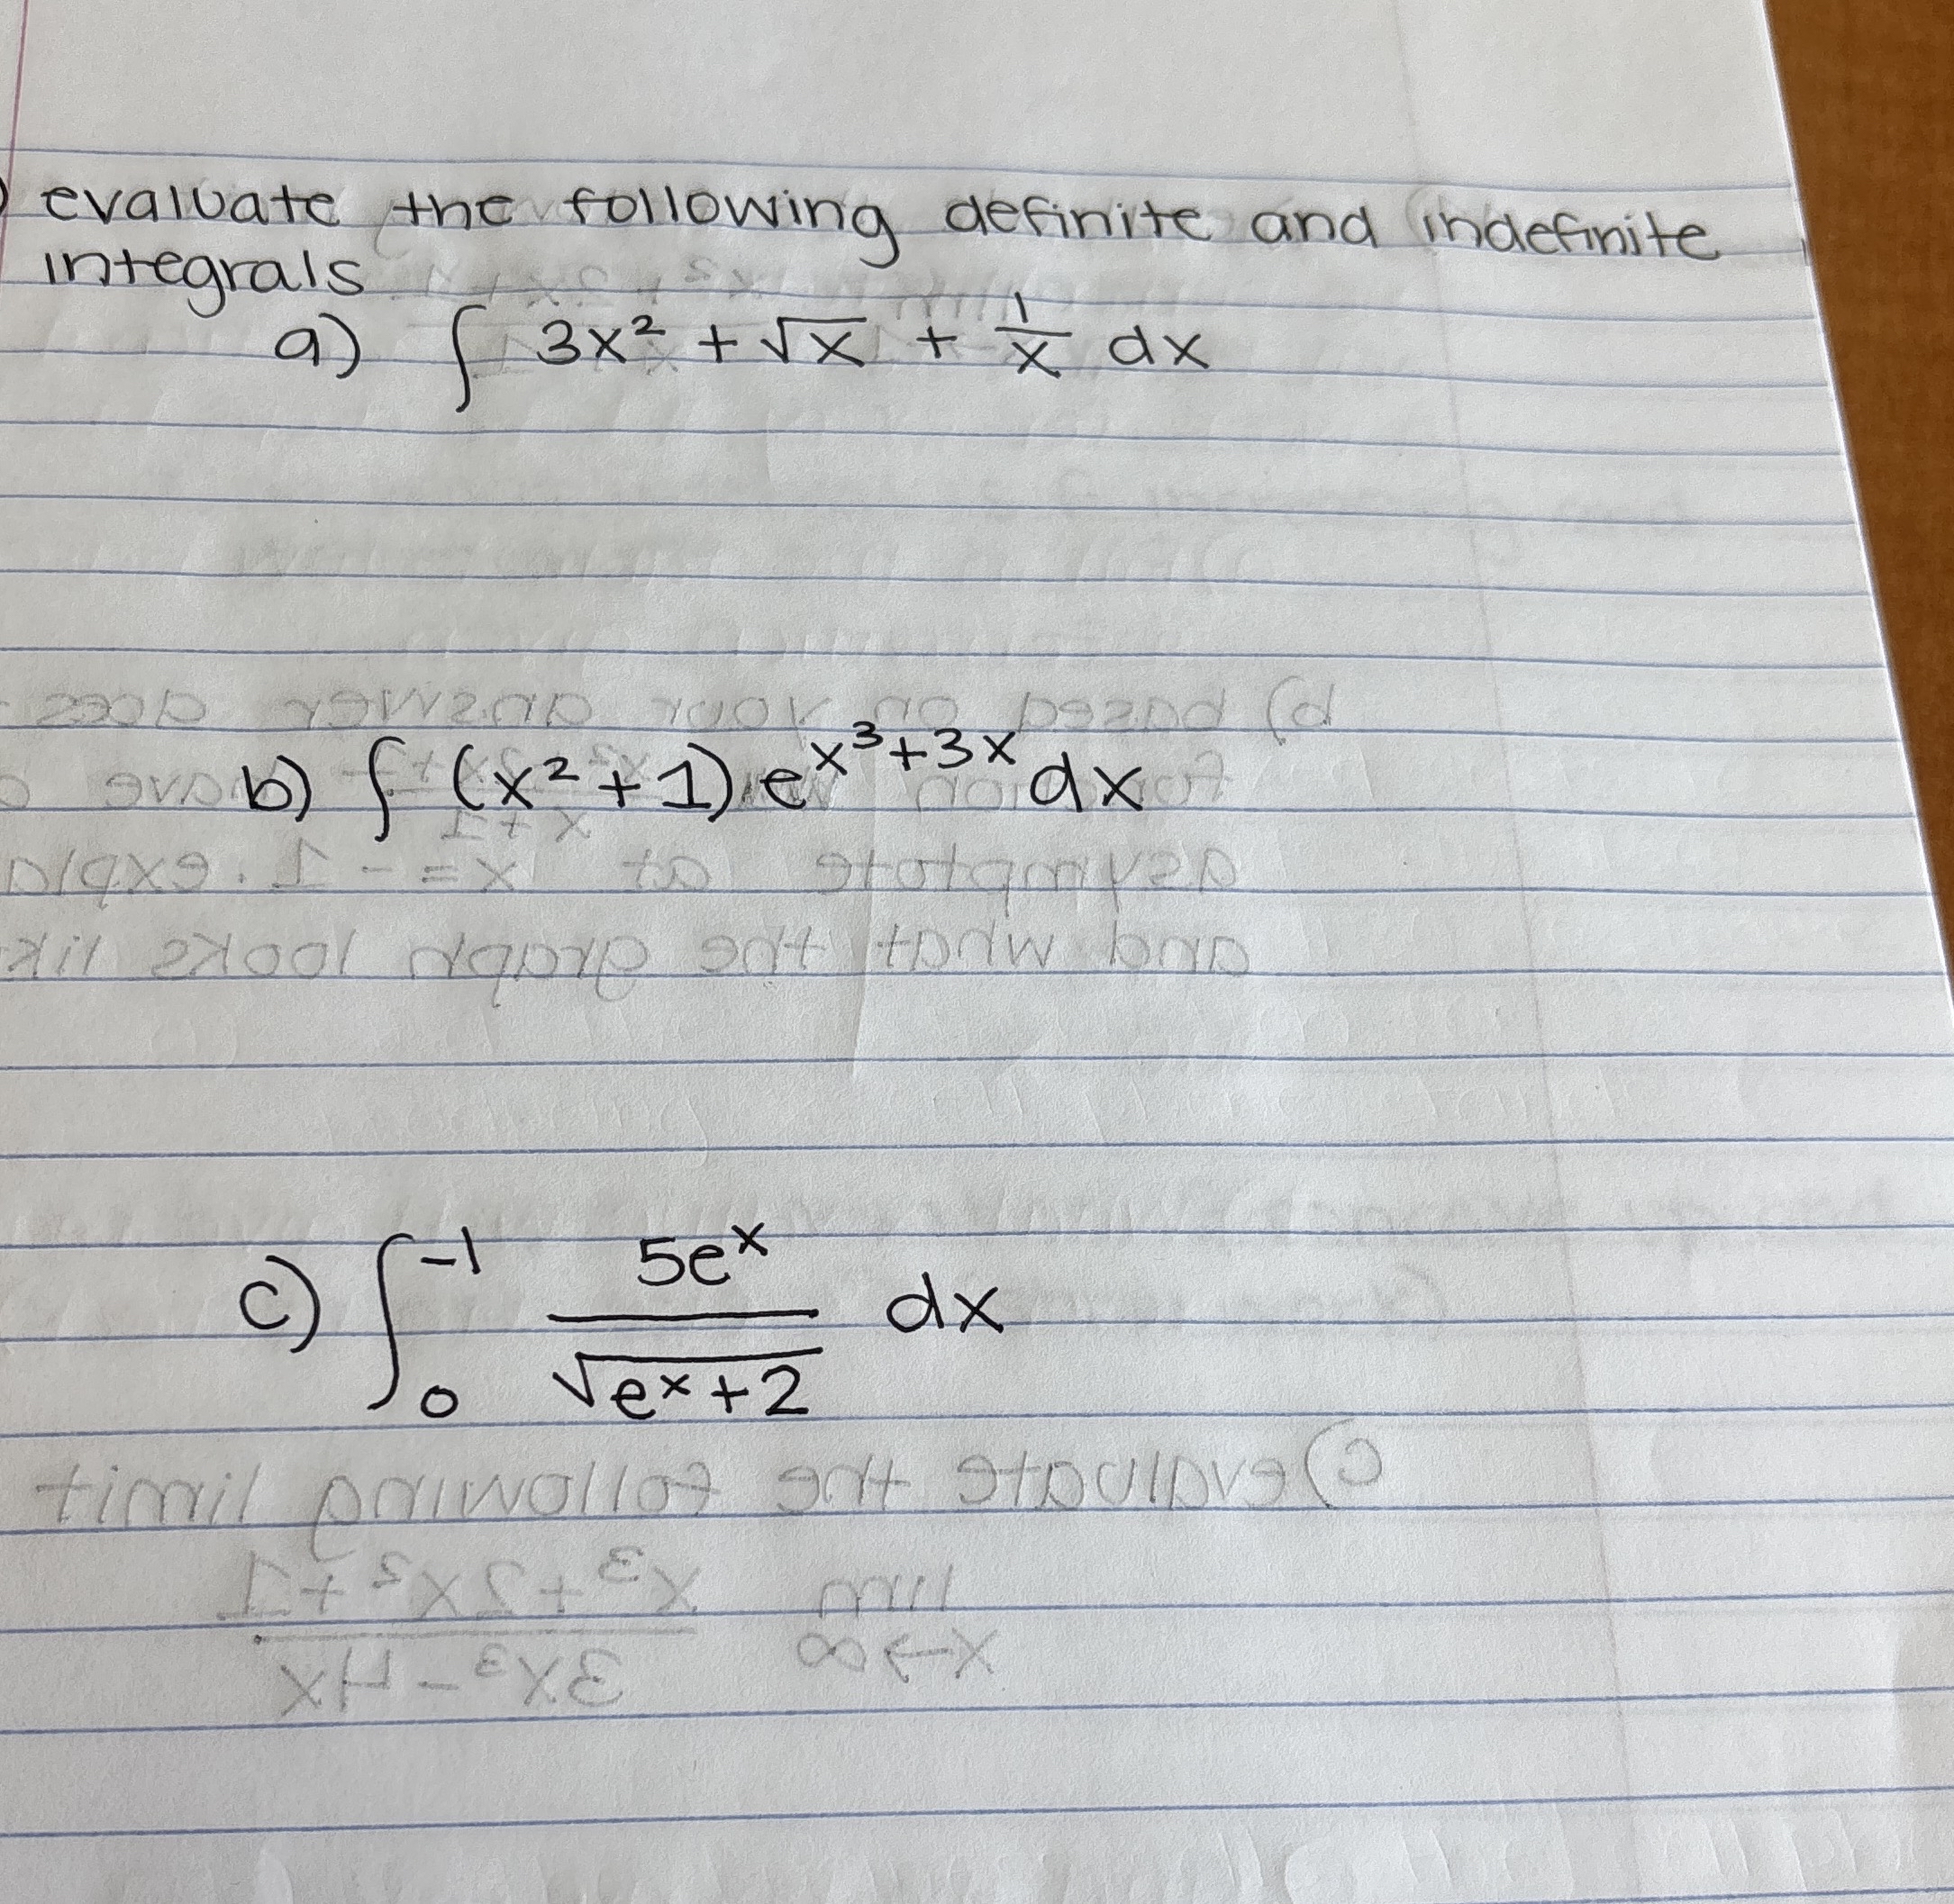 ) evaluate the following definite and indefinite
integrals
a) ∫ 3x² + √x + 1/x dx
b) ∫ (x² + 1) e^(x³+3x) dx
c) ∫₀⁻¹ 5eˣ/√(eˣ+2) dx